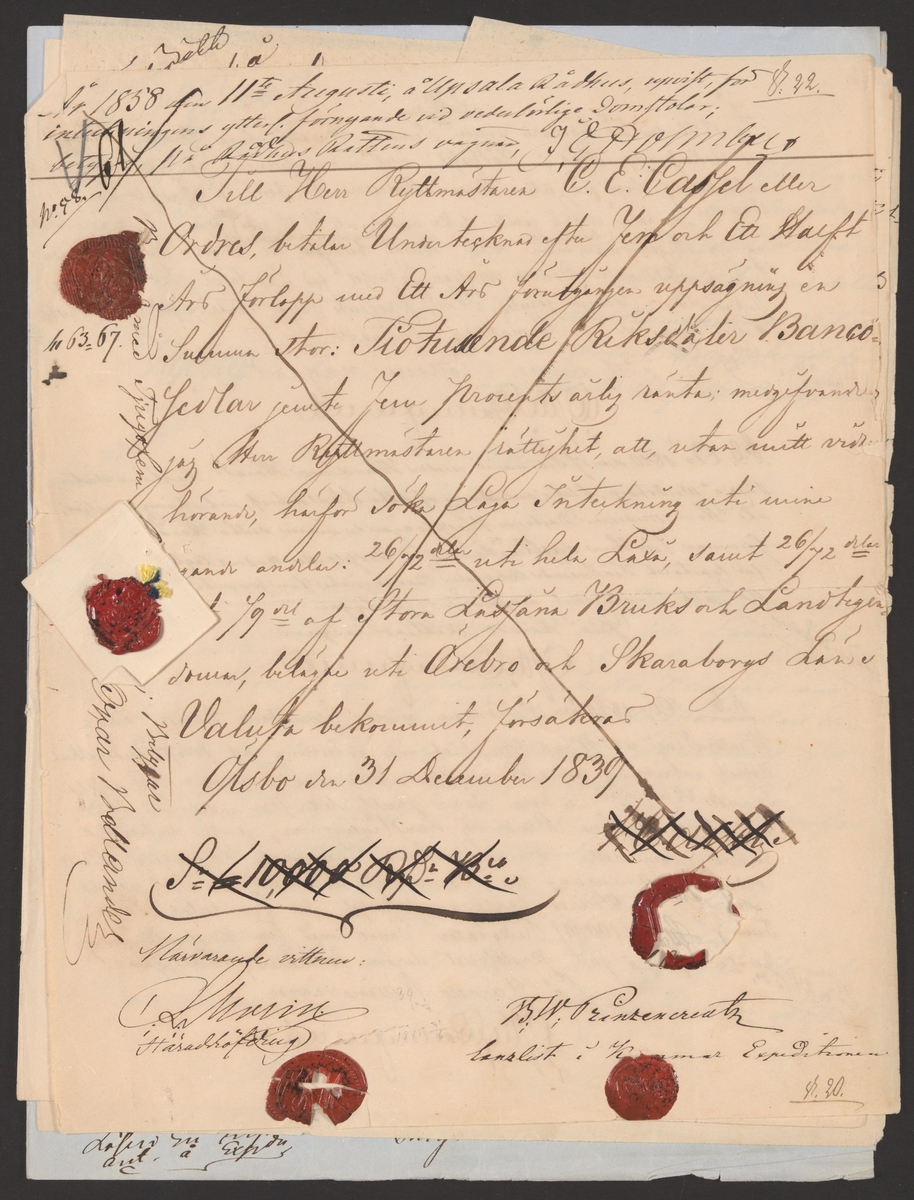 År 1858 den 11te Augusti, å Upsala Rådhus, uppvist, för
inteckningens ytterl. förnyande vid vederbörlige Domstolar;
betygar, På Rådhus Rättens vägnar,
№ 22.
61
№ 98.
Till Herr Ryttmästaren C. E. Cassel eller
Ordres, betalar Undertecknad efter Fem och Ett Halft
Års förlopp med Ett Års förutgången uppsägning en
Summa stor: Tiotusende Riksdaler Banco-
Sedlar jemte Fem Procents årlig ränta; medgifvandes
jag Herr Ryttmästaren rättighet, att, utan mitt vidare
hörande, härför söka Laga Inteckning uti mine
ägande andelar: 26/72 delar uti hela Laxå, samt 26/72 delar
1/9 del af Stora Lassåna Bruks och Landtegen-
domar, belägne uti Örebro och Skaraborgs Län
Valuta bekommit, försäkras
Ölsbo den 31 December 1839
63-67.
med Tjugofem
Betygar
Oscar
S:a 10,000 R.Dr B:co
Närvarande vittnen:
Häradhöfding
B. W. Printzencreutz
Canzlist i Expeditionen
№ 20.
Lösen
å Exped.